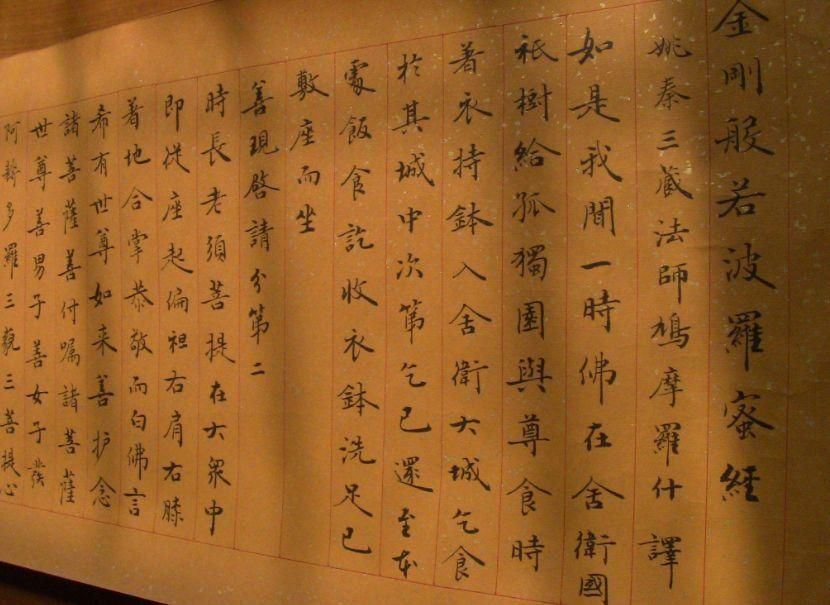 金剛般若波羅蜜經
姚秦三藏法師鳩摩羅什譯
如是我聞一時佛在舍衛國
祇樹給孤獨園與尊食時
著衣持鉢入舍衛大城乞食
於其城中次第乞已還至本
處飯食訖收衣鉢洗足已
敷座而坐
善現啓請分第二
時長老須菩提在大眾中
即從座起偏袒右肩右膝
著地合掌恭敬而白佛言
希有世尊如来善护念
諸菩薩善付嘱諸菩薩
世尊善男子善女子發
阿耨多羅三藐三菩提心